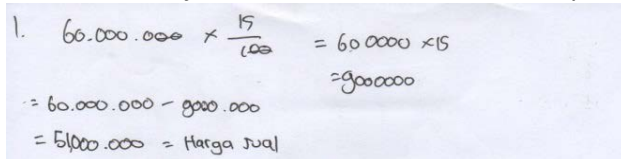 1. 60.000.000 × 15/100 = 600000 × 15
= 9000000
= 60.000.000 - 9000.000
= 51.000.000 = Harga jual